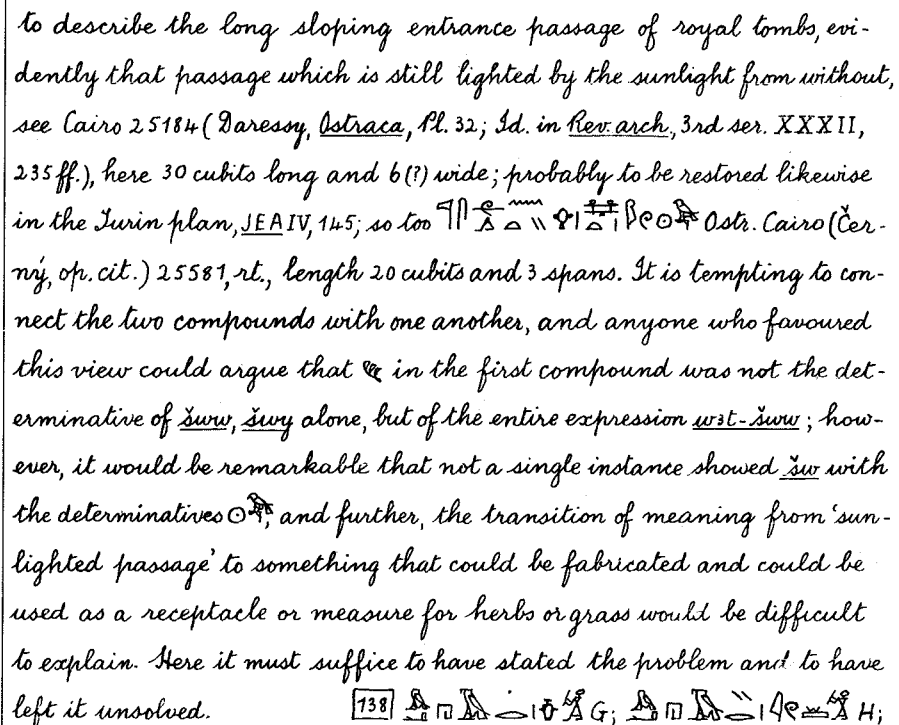 to describe the long sloping entrance passage of royal tombs, evi-
dently that passage which is still lighted by the sunlight from without,
see Cairo 25184 (Daressy, Ostraca, Pl. 32; Id. in Rev. arch., 3rd ser. XXXII,
235 ff.), here 30 cubits long and 6(?) wide; probably to be restored likewise
in the Turin plan, JEA IV, 145; so too Ostr. Cairo (Čer-
ný, op. cit.) 25581, rt., length 20 cubits and 3 spans. It is tempting to con-
nect the two compounds with one another, and anyone who favoured
this view could argue that in the first compound was not the det-
erminative of šww, šwy alone, but of the entire expression wꜣt-šww; how-
ever, it would be remarkable that not a single instance showed šw with
the determinatives , and further, the transition of meaning from ‘sun-
lighted passage’ to something that could be fabricated and could be
used as a receptacle or measure for herbs or grass would be difficult
to explain. Here it must suffice to have stated the problem and to have
left it unsolved. 138 G; H;